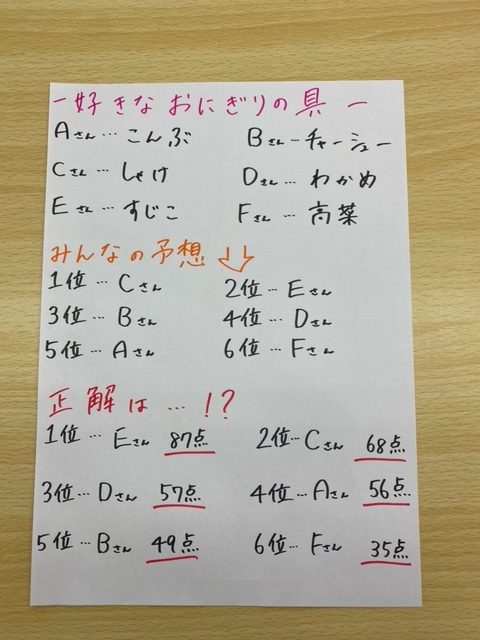 －好きなおにぎりの具－
Aさん…こんぶ Bさん…チャーシュー
Cさん…しゃけ Dさん…わかめ
Eさん…すじこ Fさん…高菜
みんなの予想
1位…Cさん 2位…Eさん
3位…Bさん 4位…Dさん
5位…Aさん 6位…Fさん
正解は…!?
1位…Eさん 87点 2位…Cさん 68点
3位…Dさん 57点 4位…Aさん 56点
5位…Bさん 49点 6位…Fさん 35点